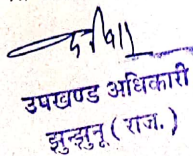 उपखण्ड अधिकारी
झुन्झुनू (राज.)